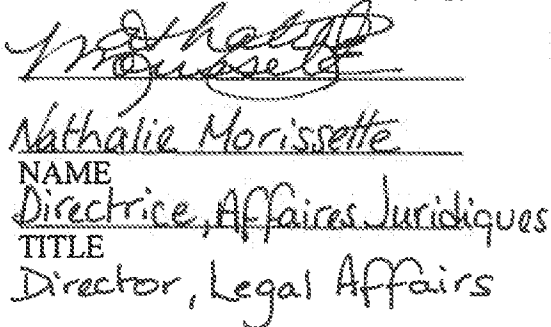 Nathalie
Morissette
Nathalie Morissette
NAME
Directrice, Affaires Juridiques
TITLE
Director, Legal Affairs